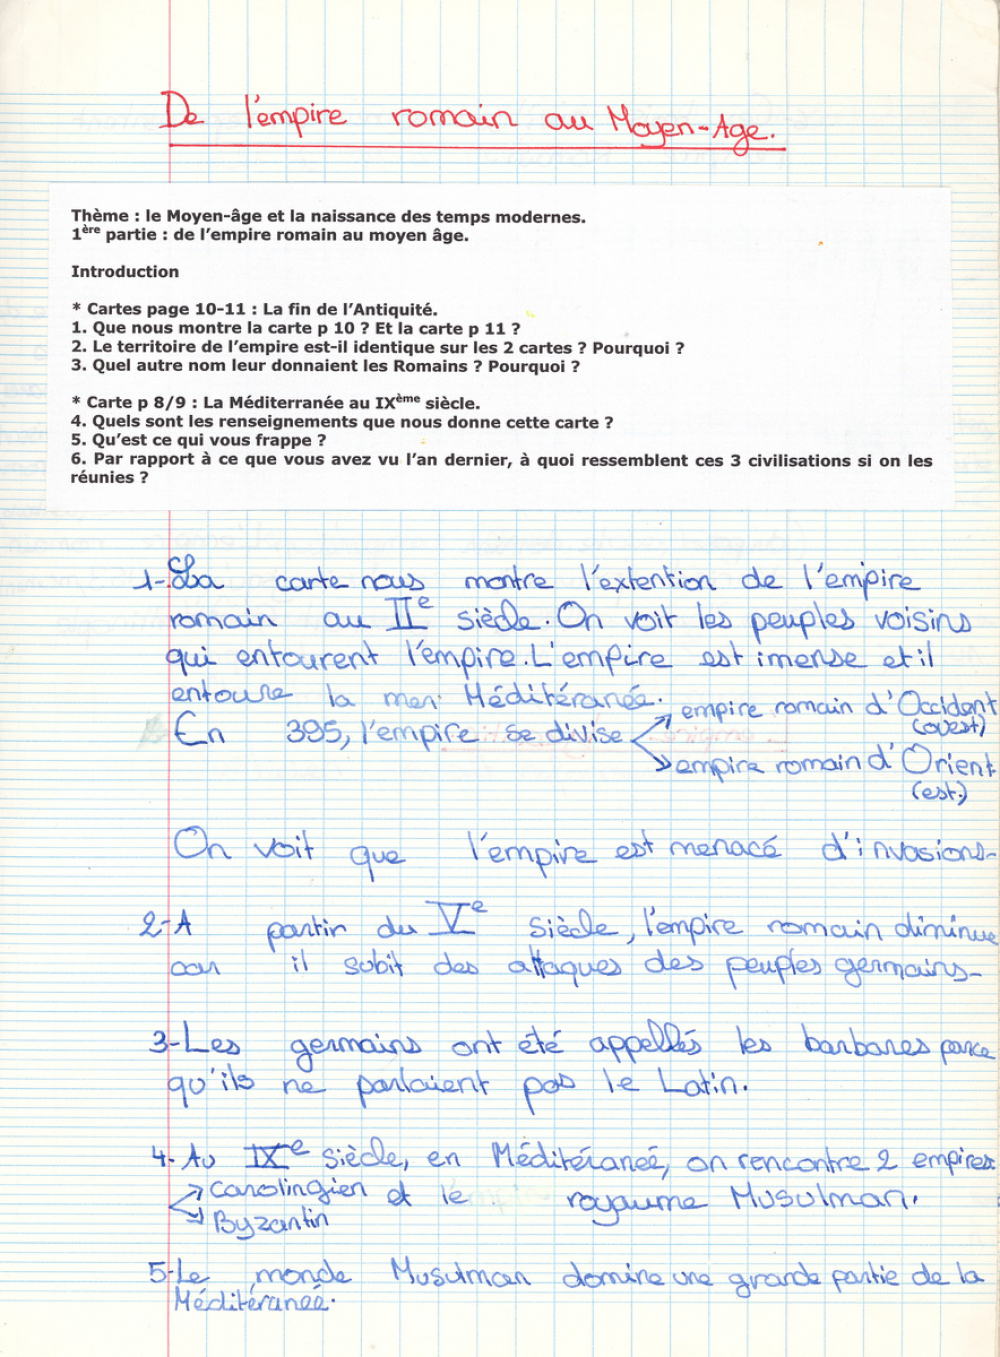 De l'empire romain au Moyen-Age.
Thème : le Moyen-âge et la naissance des temps modernes.
1ère partie : de l'empire romain au moyen âge.
Introduction
* Cartes page 10-11 : La fin de l'Antiquité.
1. Que nous montre la carte p 10 ? Et la carte p 11 ?
2. Le territoire de l'empire est-il identique sur les 2 cartes ? Pourquoi ?
3. Quel autre nom leur donnaient les Romains ? Pourquoi ?
* Carte p 8/9 : La Méditerranée au IXème siècle.
4. Quels sont les renseignements que nous donne cette carte ?
5. Qu'est ce qui vous frappe ?
6. Par rapport à ce que vous avez vu l'an dernier, à quoi ressemblent ces 3 civilisations si on les
réunies ?
1-La carte nous montre l'extention de l'empire
romain au IIe siècle. On voit les peuples voisins
qui entourent l'empire. L'empire est imense et il
entoure la mer Méditéranée.
En 395, l'empire se divise
empire romain d'Occident
(ouest)
empire romain d'Orient
(est.)
On voit que l'empire est menacé d'invasions-
2-A partir du Ve siècle, l'empire romain diminue
car il subit des attaques des peuples germains-
3-Les germains ont été appellés les barbares parce
qu'ils ne parlaient pas le Latin.
4-Au IXe siècle, en Méditéraneé, on rencontre 2 empires
carolingien et le royaume Musulman.
Byzantin
5-Le monde Musulman domine une grande partie de la
Méditéraneé.